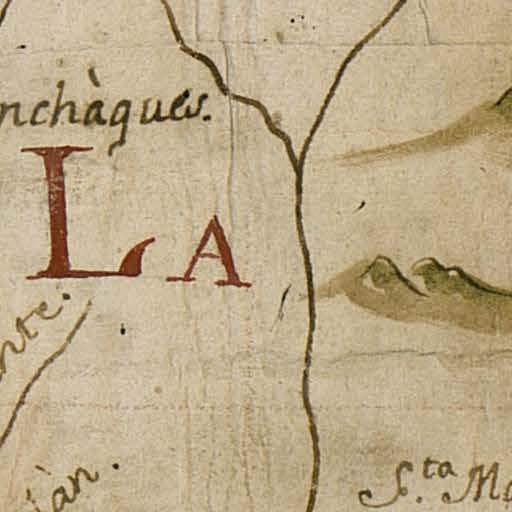 nchàques.
LA
nte.
iàn.
S.ta Ma